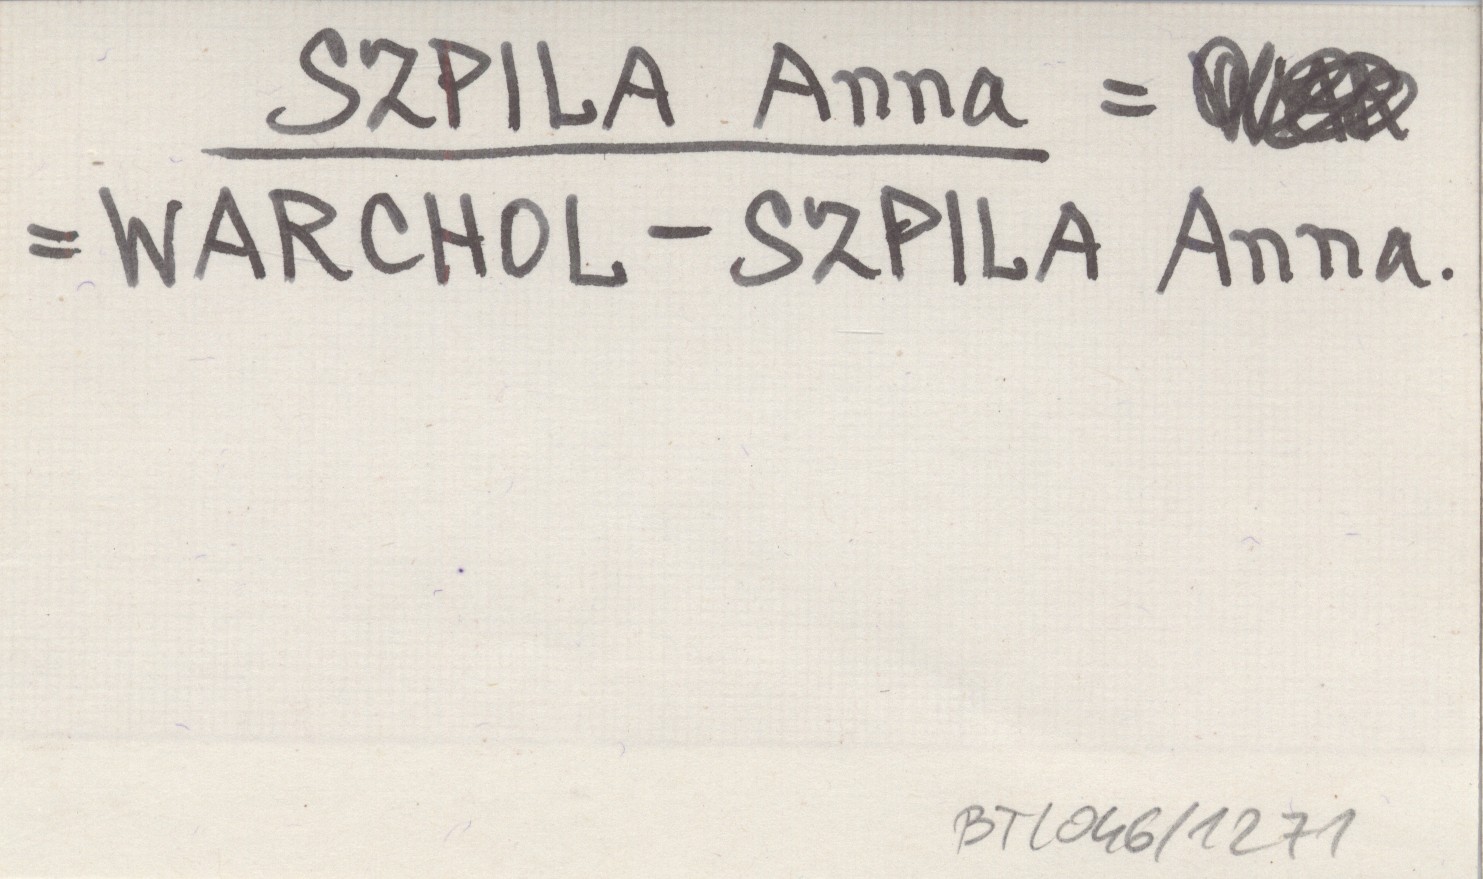 SZPILA Anna =
= WARCHOL - SZPILA Anna.
BT/046/1271